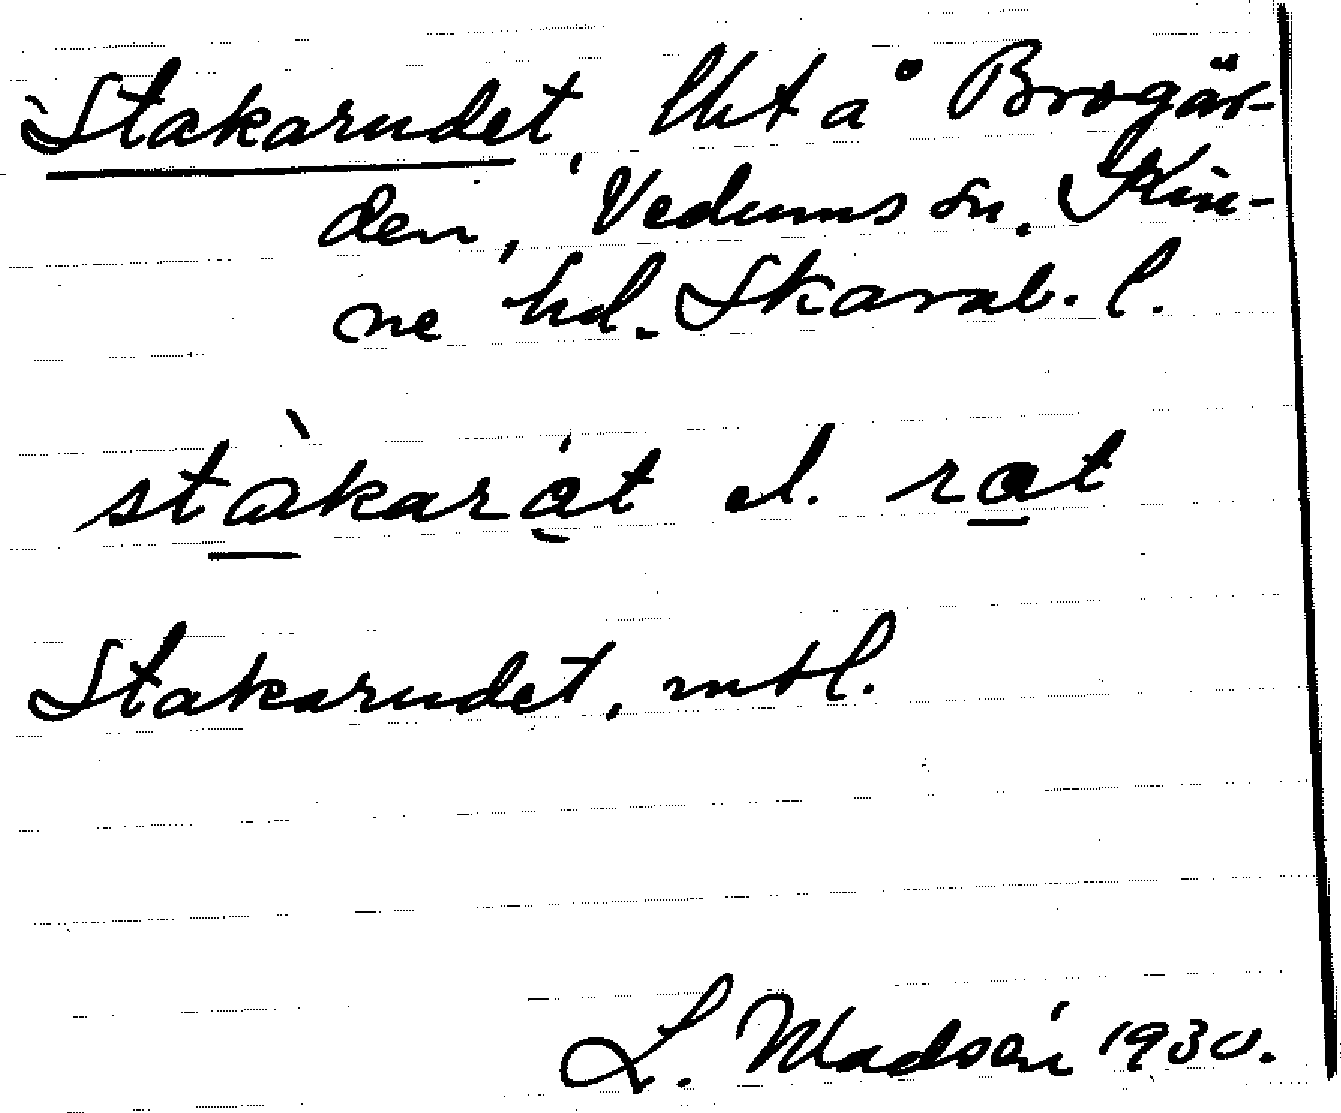 Stakarudet, lht å Brogär-
den, Vedums sn. Kin-
ne hd. Skarab. l.
stàkarát el. rat
Stakarudet, mtl.
L. Madsén 1930.